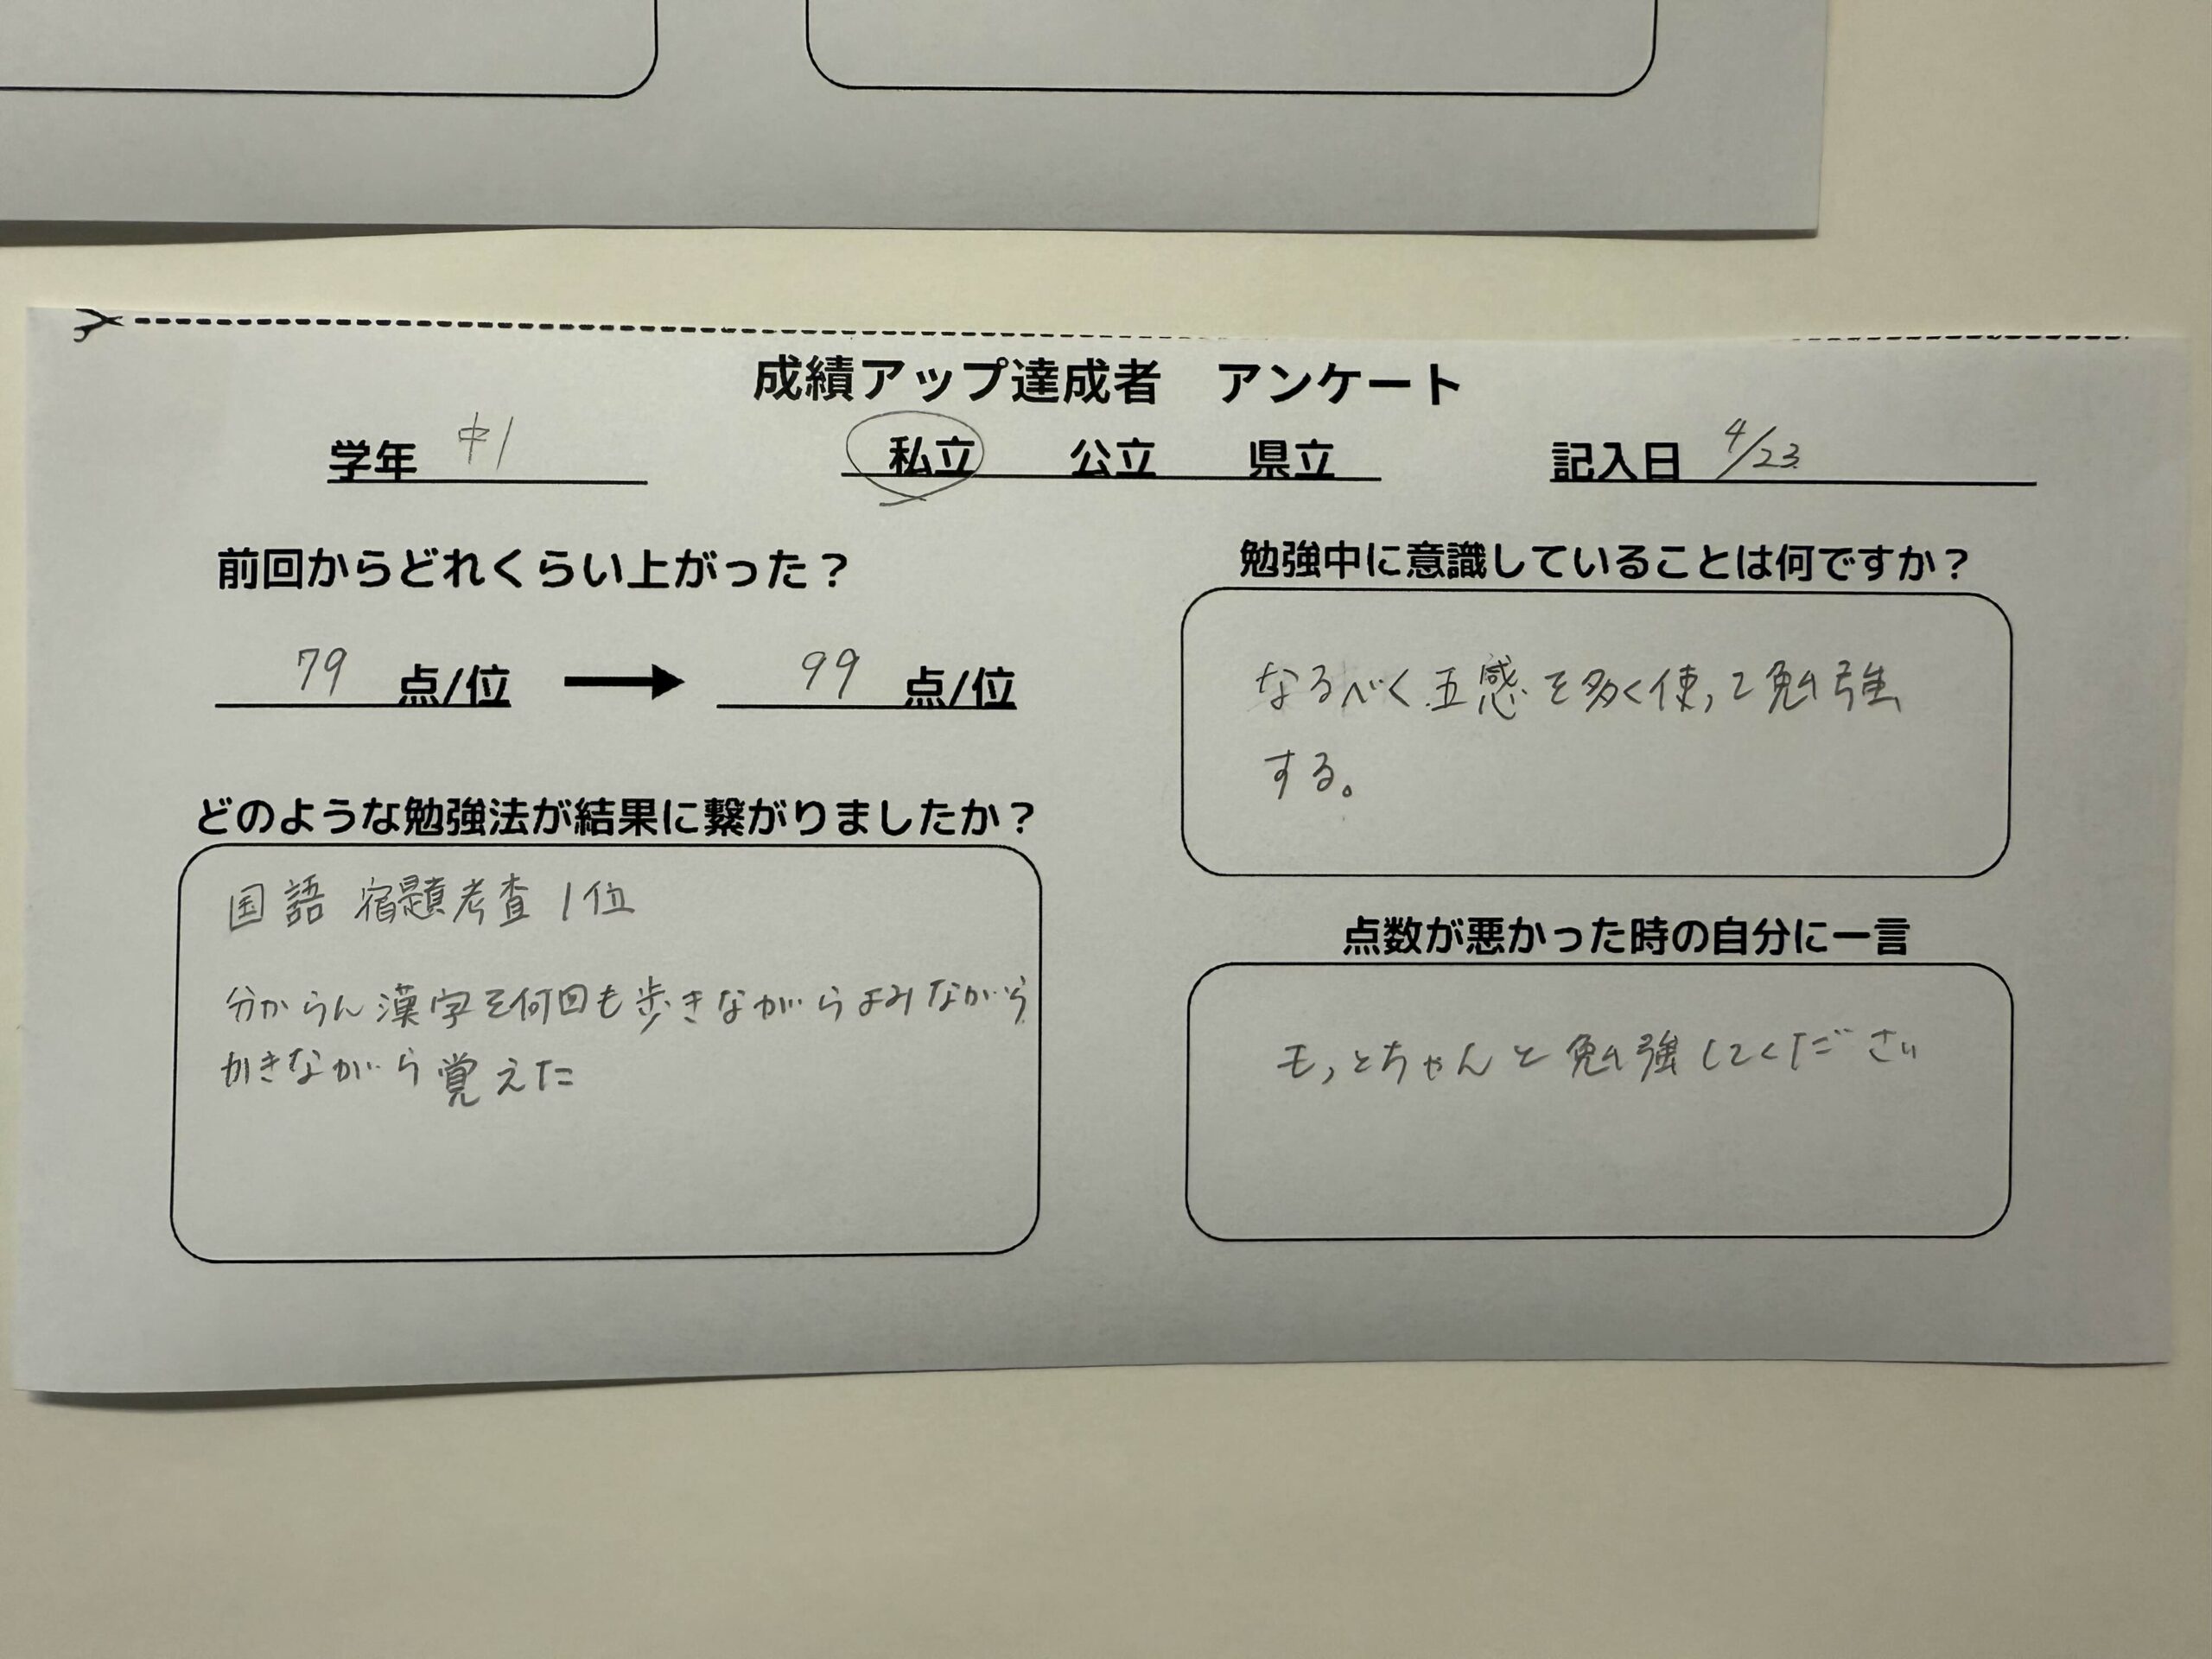 成績アップ達成者 アンケート
学年 中1 私立 公立 県立 記入日 4/23
前回からどれくらい上がった？
79 点/位 → 99 点/位
どのような勉強法が結果に繋がりましたか？
国語 宿題考査 1位
分からん漢字を何回も歩きながらよみながら
かきながら覚えた
勉強中に意識していることは何ですか？
なるべく五感を多く使って勉強
する。
点数が悪かった時の自分に一言
もっとちゃんと勉強してください